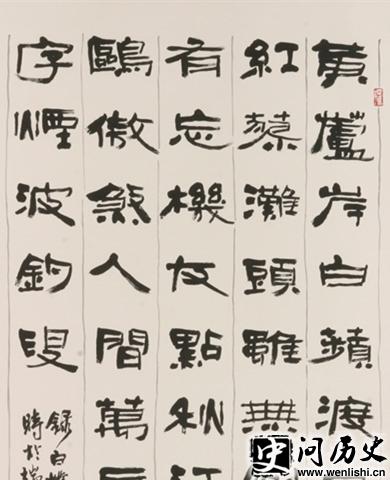 黃蘆岸白蘋渡
紅蓼灘頭雖無
有忘機友點秋江
鷗傲煞人間萬
字煙波釣叟
錄白樸
時於
问历史
www.wenlishi.cn